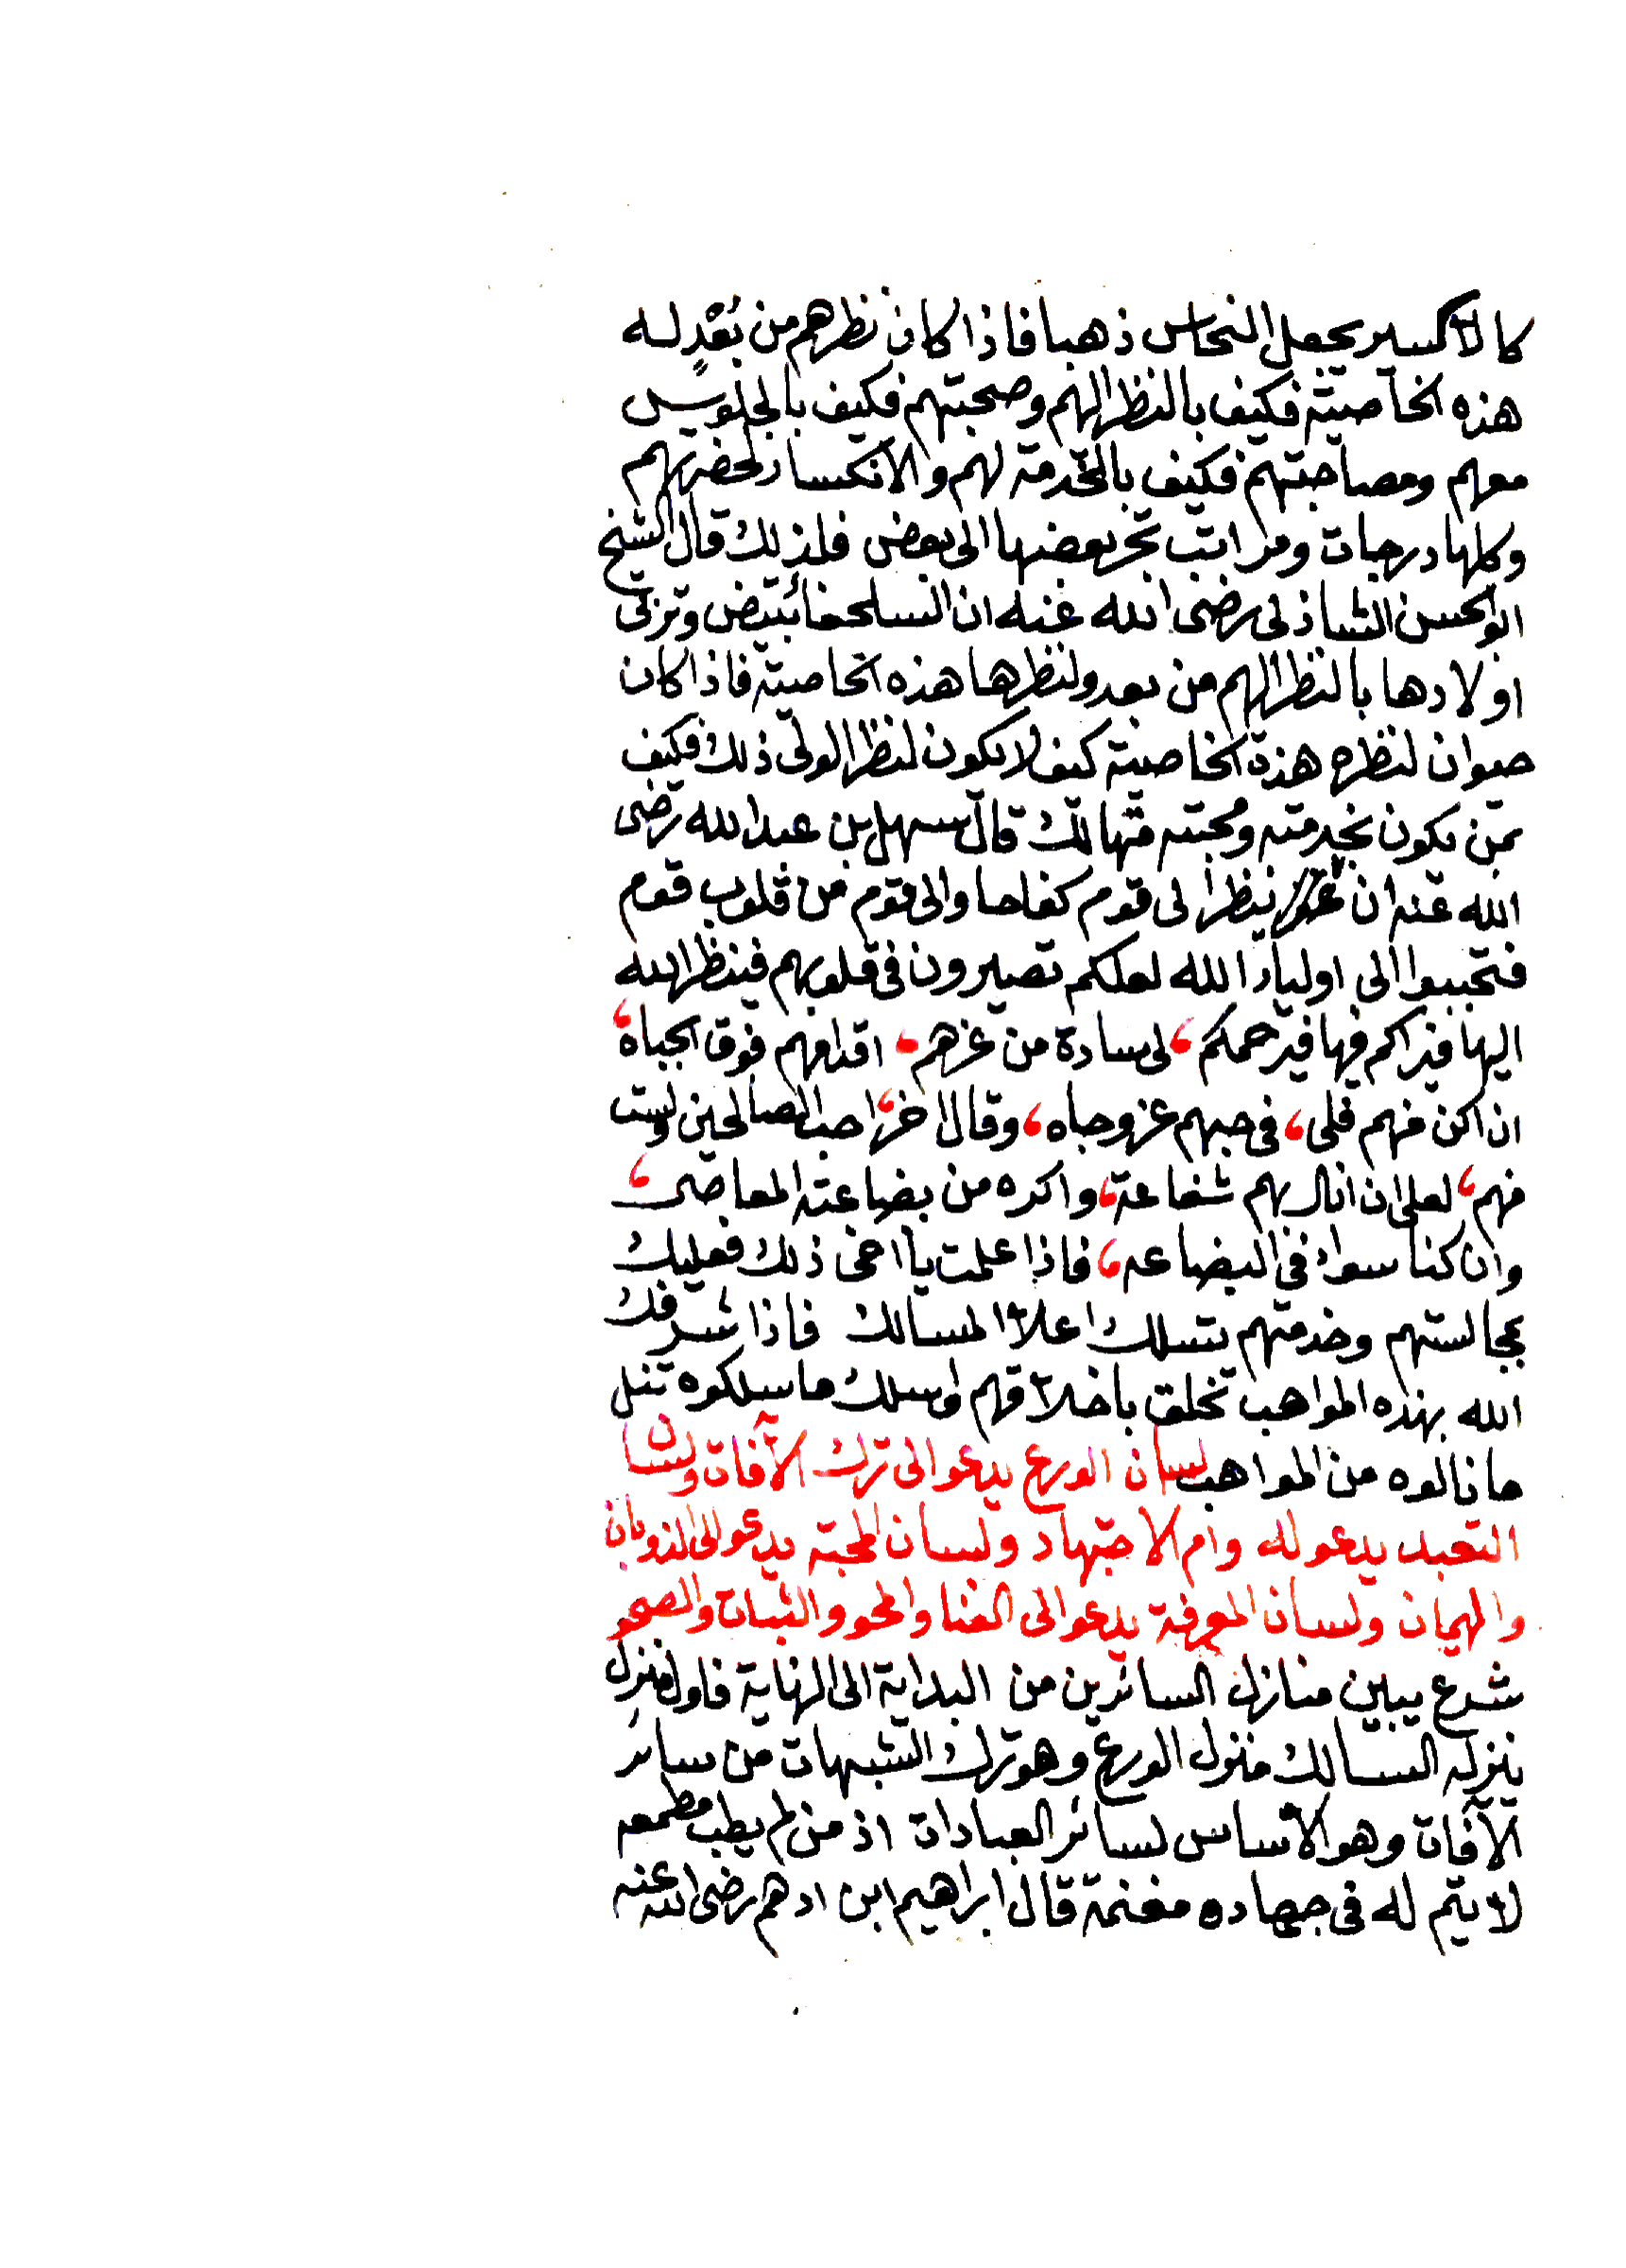 كالاكسير يجعل النحاس ذهبا فاذا كان نظرهم من بُعْدٍ له
هذه الخاصية فكيف بالنظر اليهم وصحبتهم فكيف بالجلوس
معهم ومصاحبتهم فكيف بالخدمة لهم والانكسار لحضرتهم
وكلها درجات ومراتب تجر بعضها الى بعض فلذلك قال الشيخ
ابو الحسن الشاذلى رضى الله عنه ان السلحفا تبيض وتربى
اولادها بالنظر اليهم من بعد ولنظرها هذه الخاصية فاذا كان
حيوان لنظره هذه الخاصية كيف لا يكون لنظر الولى ذلك فكيف
بمن يكون بخدمته ومحبته متهالك قال سهل بن عبد الله رضى
الله عنه ان ينظر الى قوم كفاحا والى قوم من قلوب قوم
فتحببوا الى اولياء الله لعلكم تصيرون فى قلوبهم فينظر الله
اليها فيراكم فيها فيرحمكم ، لى سادة من عزهم ، اقدامهم فوق الجباه ،
ان اكن منهم فلى ، فى حبهم عز وجاه ، وقال اخر ، احب الصالحين ولست
منهم ، لعلى ان انال بهم شفاعة ، واكره من بضاعته المعاصى ،
وان كنا سواء فى البضاعه ، فاذا علمت يا اخى ذلك فعليك
بمجالستهم وخدمتهم تتسلك اعلا المسالك فاذا شرفك
الله بهذه المواهب تخلق باخلاقهم واسلك ما سلكوه تنل
ما نالوه من المواهب لسان الورع يدعوا الى ترك الآفات ولسان
التعبد يدعو له وام الاجتهاد ولسان المحبة يدعو الى الذوبان
والهيمان ولسان المعرفة يدعوا الى الفنا والمحو والثبات والصحو
شرع يبين منازل السائرين من البداية الى النهاية فاول منزل
ينزله السالك منزل الورع وهو ترك الشبهات من سائر
الآفات وهو الاساس لسائر العبادات اذ من لم يطب مطعمه
لا يتم له فى جهاده مغنمة قال ابراهيم ابن ادهم رضى الله عنه